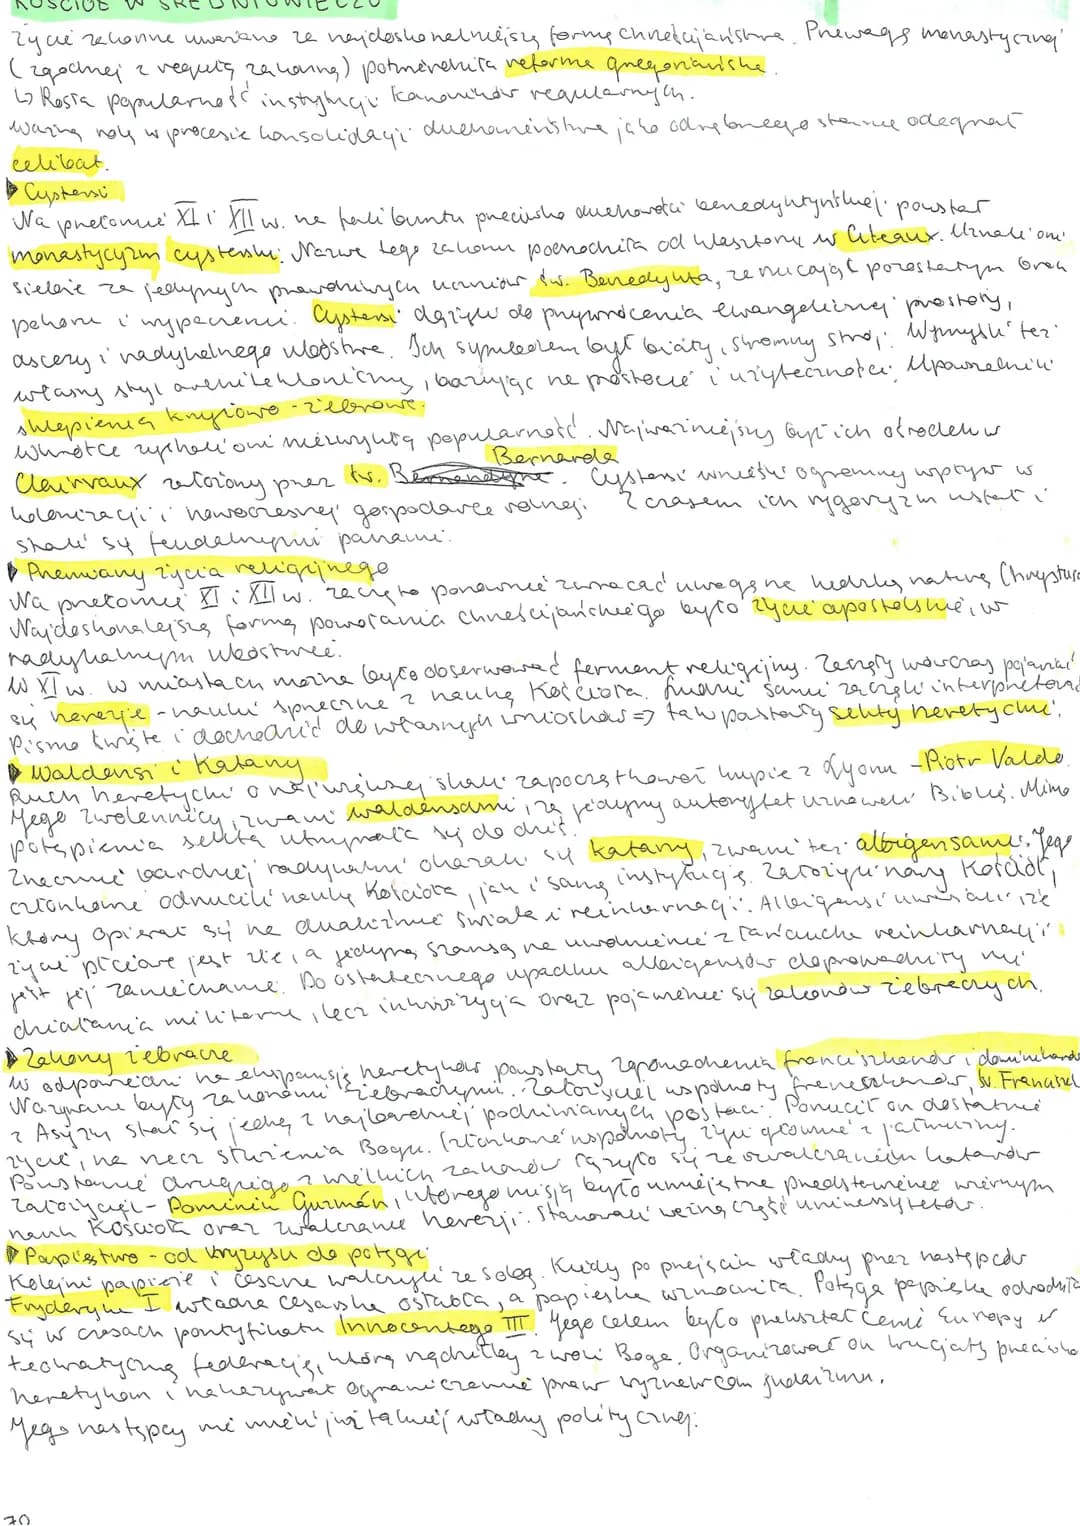 KOŚCIÓŁ W ŚREDNIOWIECZU
Życie zakonne uważano za najdoskonalniejszą formę chrześcijaństwa. Przewagę monastycznej
(zgodnej z regułą zakonną) potwierdziła reforma gregoriańska.
↳ Rosła popularność instytucji kanoników regularnych.
Ważną rolę w procesie konsolidacji duchowieństwa jako odrębnego stanu odegrał
celibat.
▶ Cystersi
Na przełomie XI i XII w. na fali buntu przeciwko duchowości benedyktyńskiej powstał
monastycyzm cysterski. Nazwa tego zakonu pochodziła od klasztoru w Citeaux. Uznali oni
siebie za jedynych prawdziwych uczniów św. Benedykta, zarzucając pozostałym brak
pokory i wyparcenia. Cystersi dążyli do przywrócenia ewangelicznej prostoty,
ascezy i radykalnego ubóstwa. Ich symbolem był biały, skromny strój. Wymyślili też
własny styl architektoniczny, bazując na prostocie i użyteczności. Upowszechnili
sklepienia krzyżowo-żebrowe.
Wkrótce zyskali oni niezwykłą popularność. Najważniejszy był ich ośrodek w
Clairvaux założony przez św. Bernarda. Cystersi wnieśli ogromny wpływ w
kolonizacji i nowoczesnej gospodarce rolnej. Z czasem ich rygoryzm ustał i
stali się feudalnymi panami.
▶ Przemiany życia religijnego
Na przełomie XI i XII w. zaczęto ponownie zwracać uwagę na ludzką naturę Chrystusa
Najdoskonalszą formą powołania chrześcijańskiego było życie apostolskie, w
radykalnym ubóstwie.
W XI w. w miastach można było obserwować ferment religijny. Zaczęły wówczas pojawiać
się herezje - nauki sprzeczne z nauką Kościoła. Ludzie sami zaczęli interpretować
Pismo Święte i dochodzić do własnych wniosków => tak powstały sekty heretyckie.
▶ Waldensi i Katarzy
Ruch heretycki o największej skali zapoczątkował kupiec z Lyonu - Piotr Valdo.
Jego zwolennicy, zwani waldensami, za jedyny autorytet uznawali Biblię. Mimo
potępienia sekta utrzymała się do dziś.
Znacznie bardziej radykalni okazali się katarzy, zwani też albigensami. Jego
członkowie odrzucili naukę Kościoła, jak i samą instytucję. Założyli nowy Kościół,
który opierał się na dualizmie świata i reinkarnacji. Albigensi uważali, że
życie płciowe jest złe, a jedyną szansą na uwolnienie z łańcucha reinkarnacji
jest jej zaniechanie. Do ostatecznego upadku albigensów doprowadziły nie
działania militarne, lecz inkwizycja oraz pojawienie się zakonów żebraczych.
▶ Zakony żebracze
W odpowiedzi na ekspansję heretyków powstały zgromadzenia franciszkanów i dominikanów
Nazywane były zakonami żebraczymi. Założyciel wspólnoty franciszkanów, św. Franciszek
z Asyżu stał się jedną z najbardziej podziwianych postaci. Porzucił on dostatnie
życie, na rzecz służenia Bogu. Członkowie wspólnoty żyli głównie z jałmużny.
Powstanie drugiego z wielkich zakonów łączyło się ze zwalczaniem katarów
Założyciel - Dominik Guzmán, którego misją było umiejętne przedstawienie wiernym
nauk Kościoła oraz zwalczanie herezji. Stanowili ważną część uniwersytetów.
▶ Papiestwo - od kryzysu do potęgi
Kolejni papieże i cesarze walczyli ze sobą. Kiedy po przejęciu władzy przez następców
Fryderyka I władza cesarska osłabła, a papieska wzmocniła. Potęga papieska odrodziła
się w czasach pontyfikatu Innocentego III. Jego celem było przekształcenie Europy w
teokratyczną federację, którą rządziłby z woli Boga. Organizował on krucjaty przeciwko
heretykom i nakazywał ograniczenie praw wyznawcom judaizmu.
Jego następcy nie mieli już takiej władzy politycznej.
70